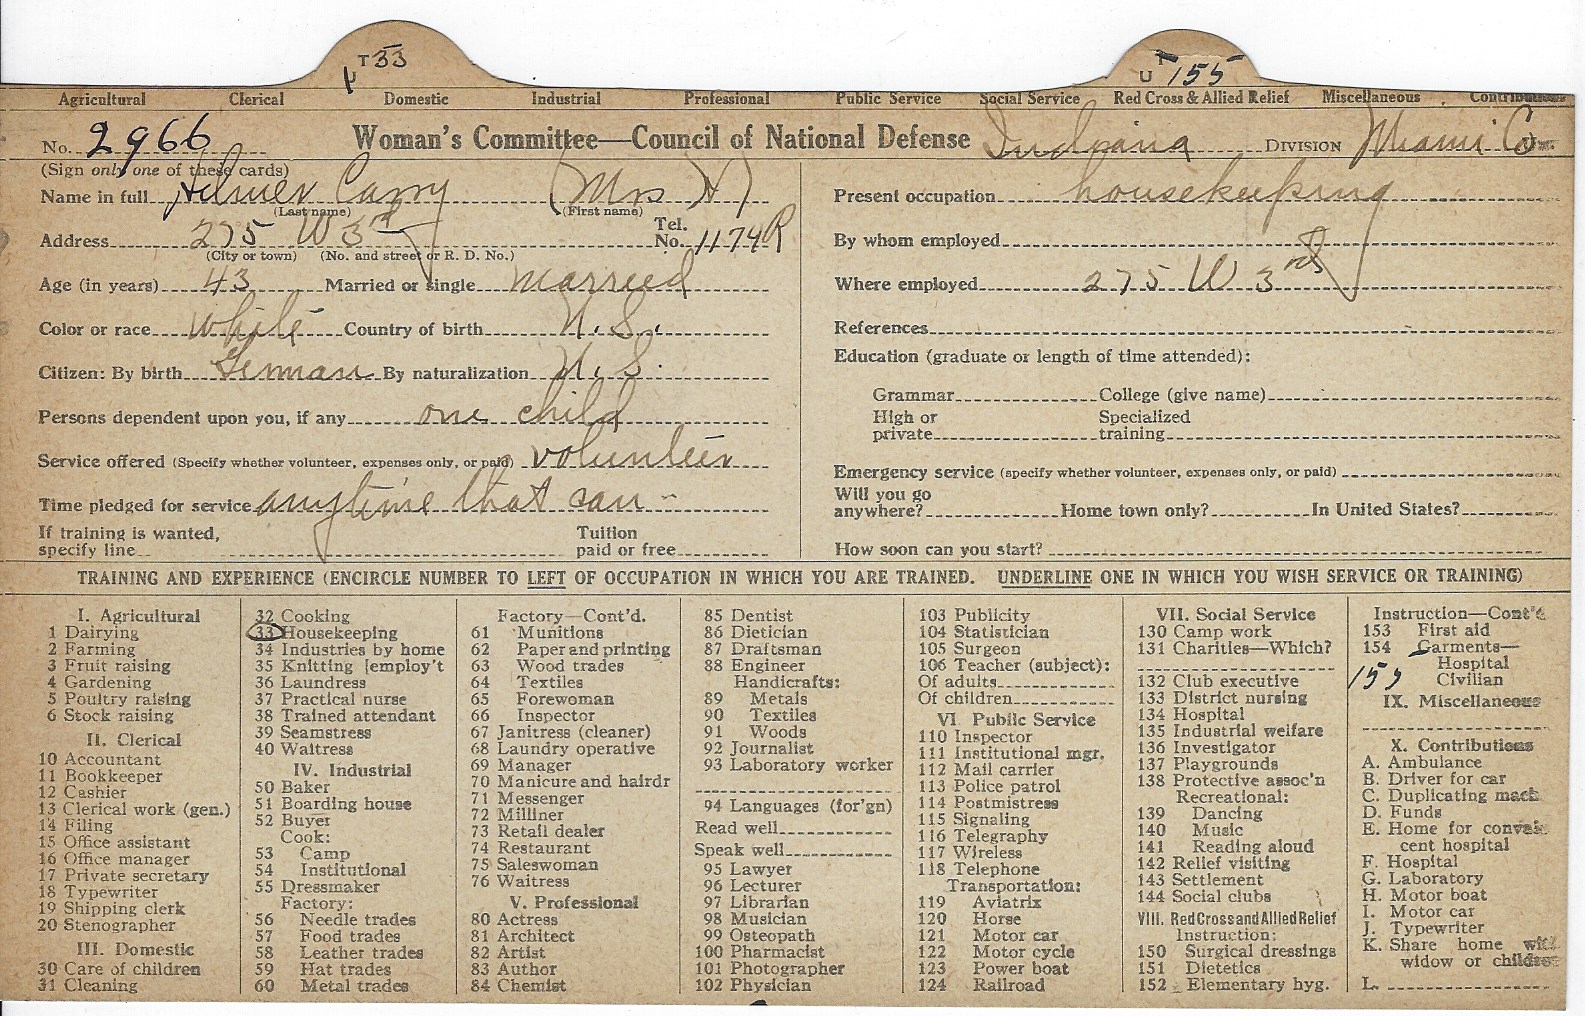 T 33
U T 155
Agricultural Clerical Domestic Industrial Professional Public Service Social Service Red Cross & Allied Relief Miscellaneous Contributions
No. 2966 Woman's Committee—Council of National Defense Indiana DIVISION Miami Co
(Sign only one of these cards)
Name in full (Mrs H)
(Last name) (First name)
Address 275 W 3rd Tel. No. 1174R
(City or town) (No. and street or R. D. No.)
Age (in years) 43 Married or single Married
Color or race White Country of birth U. S.
Citizen: By birth German By naturalization U. S.
Persons dependent upon you, if any one child
Service offered (Specify whether volunteer, expenses only, or paid) volunteer
Time pledged for service anytime that can
If training is wanted,
specify line
Tuition
paid or free
Present occupation housekeeping
By whom employed
Where employed 275 W 3rd
References
Education (graduate or length of time attended):
Grammar College (give name)
High or
private
Specialized
training
Emergency service (specify whether volunteer, expenses only, or paid)
Will you go
anywhere? Home town only? In United States?
How soon can you start?
TRAINING AND EXPERIENCE (ENCIRCLE NUMBER TO LEFT OF OCCUPATION IN WHICH YOU ARE TRAINED. UNDERLINE ONE IN WHICH YOU WISH SERVICE OR TRAINING)
I. Agricultural
1 Dairying
2 Farming
3 Fruit raising
4 Gardening
5 Poultry raising
6 Stock raising
II. Clerical
10 Accountant
11 Bookkeeper
12 Cashier
13 Clerical work (gen.)
14 Filing
15 Office assistant
16 Office manager
17 Private secretary
18 Typewriter
19 Shipping clerk
20 Stenographer
III. Domestic
30 Care of children
31 Cleaning
32 Cooking
33 Housekeeping
34 Industries by home
35 Knitting [employ't
36 Laundress
37 Practical nurse
38 Trained attendant
39 Seamstress
40 Waitress
IV. Industrial
50 Baker
51 Boarding house
52 Buyer
Cook:
53 Camp
54 Institutional
55 Dressmaker
Factory:
56 Needle trades
57 Food trades
58 Leather trades
59 Hat trades
60 Metal trades
Factory—Cont'd.
61 Munitions
62 Paper and printing
63 Wood trades
64 Textiles
65 Forewoman
66 Inspector
67 Janitress (cleaner)
68 Laundry operative
69 Manager
70 Manicure and hairdr
71 Messenger
72 Milliner
73 Retail dealer
74 Restaurant
75 Saleswoman
76 Waitress
V. Professional
80 Actress
81 Architect
82 Artist
83 Author
84 Chemist
85 Dentist
86 Dietician
87 Draftsman
88 Engineer
Handicrafts:
89 Metals
90 Textiles
91 Woods
92 Journalist
93 Laboratory worker
94 Languages (for'gn)
Read well
Speak well
95 Lawyer
96 Lecturer
97 Librarian
98 Musician
99 Osteopath
100 Pharmacist
101 Photographer
102 Physician
103 Publicity
104 Statistician
105 Surgeon
106 Teacher (subject):
Of adults
Of children
VI Public Service
110 Inspector
111 Institutional mgr.
112 Mail carrier
113 Police patrol
114 Postmistress
115 Signaling
116 Telegraphy
117 Wireless
118 Telephone
Transportation:
119 Aviatrix
120 Horse
121 Motor car
122 Motor cycle
123 Power boat
124 Railroad
VII. Social Service
130 Camp work
131 Charities—Which?
132 Club executive
133 District nursing
134 Hospital
135 Industrial welfare
136 Investigator
137 Playgrounds
138 Protective assoc'n
Recreational:
139 Dancing
140 Music
141 Reading aloud
142 Relief visiting
143 Settlement
144 Social clubs
VIII. Red Cross and Allied Relief
Instruction:
150 Surgical dressings
151 Dietetics
152 Elementary hyg.
Instruction—Cont'd
153 First aid
154 Garments—
Hospital
155 Civilian
IX. Miscellaneous
X. Contributions
A. Ambulance
B. Driver for car
C. Duplicating mach
D. Funds
E. Home for conval
cent hospital
F. Hospital
G. Laboratory
H. Motor boat
I. Motor car
J. Typewriter
K. Share home with
widow or children
L.